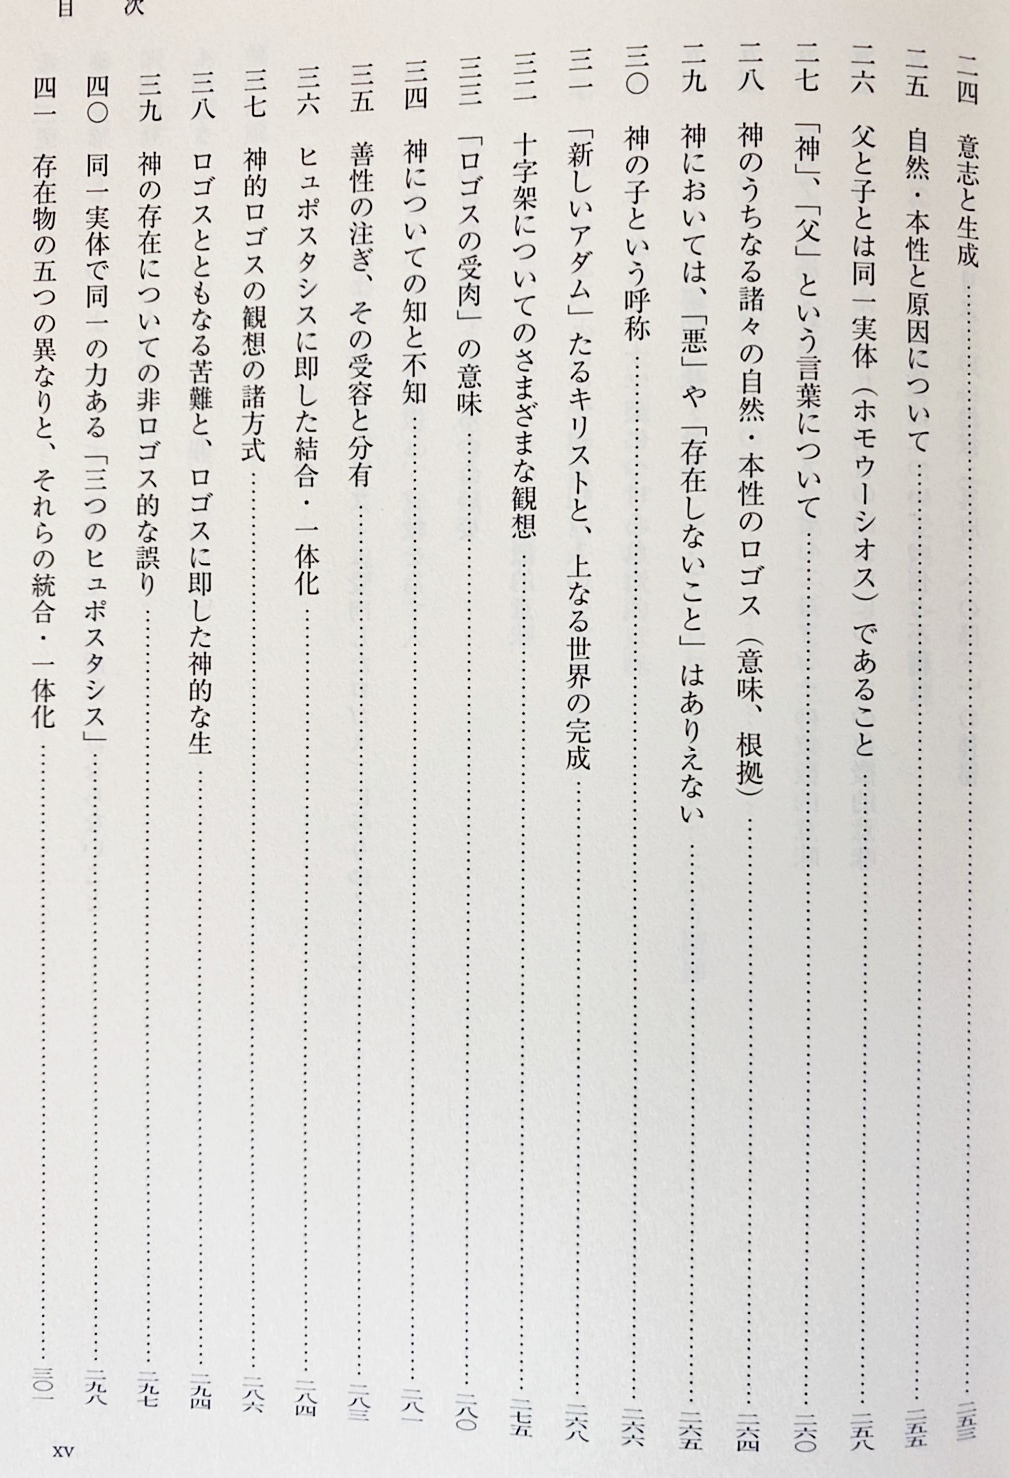 目　次
二四　意志と生成……二五三
二五　自然・本性と原因について……二五五
二六　父と子とは同一実体（ホモウーシオス）であること……二五八
二七　「神」、「父」という言葉について……二六〇
二八　神のうちなる諸々の自然・本性のロゴス（意味、根拠）……二六四
二九　神においては、「悪」や「存在しないこと」はありえない……二六五
三〇　神の子という呼称……二六六
三一　「新しいアダム」たるキリストと、上なる世界の完成……二六八
三二　十字架についてのさまざまな観想……二七五
三三　「ロゴスの受肉」の意味……二八〇
三四　神についての知と不知……二八一
三五　善性の注ぎ、その受容と分有……二八三
三六　ヒュポスタシスに即した結合・一体化……二八四
三七　神的ロゴスの観想の諸方式……二八六
三八　ロゴスとともなる苦難と、ロゴスに即した神的な生……二九四
三九　神の存在についての非ロゴス的な誤り……二九七
四〇　同一実体で同一の力ある「三つのヒュポスタシス」……二九八
四一　存在物の五つの異なりと、それらの統合・一体化……三〇一
xv